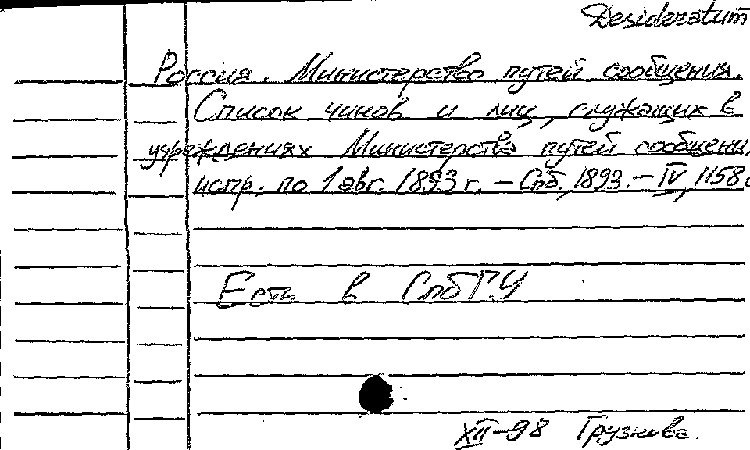 Desideratum
Россия. Министерство путей сообщения.
Список чинов и лиц, служащих в
учреждениях Министерства путей сообщени
испр. по 1 авг. 1893 г. – Спб., 1893. – IV, 1158 с
Есть в СпбГУ
XII–98 Грузнова.